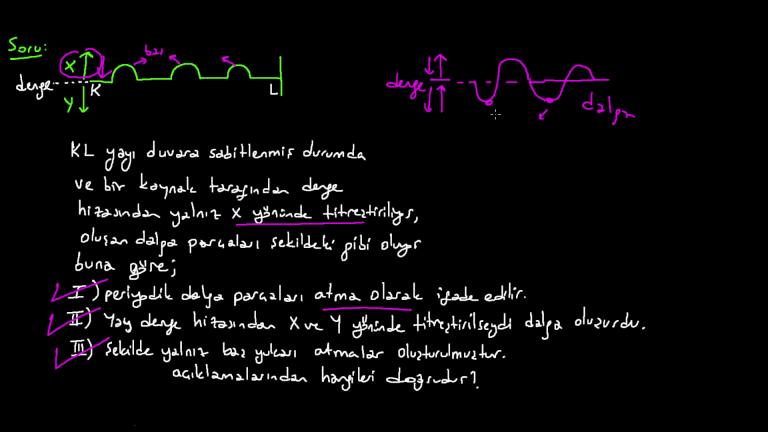 Soru:
X baş
denge K L
Y
denge
dalga
KL yayı duvara sabitlenmiş durumda
ve bir kaynak tarafından denge
hizasından yalnız X yönünde titreştiriliyor,
oluşan dalga parçaları şekildeki gibi oluyor
buna göre;
I) periyodik dalga parçaları atma olarak ifade edilir.
II) Yay denge hizasından X ve Y yönünde titreştirilseydi dalga oluşurdu.
III) Şekilde yalnız baş yukarı atmalar oluşturulmuştur.
açıklamalarından hangileri doğrudur?